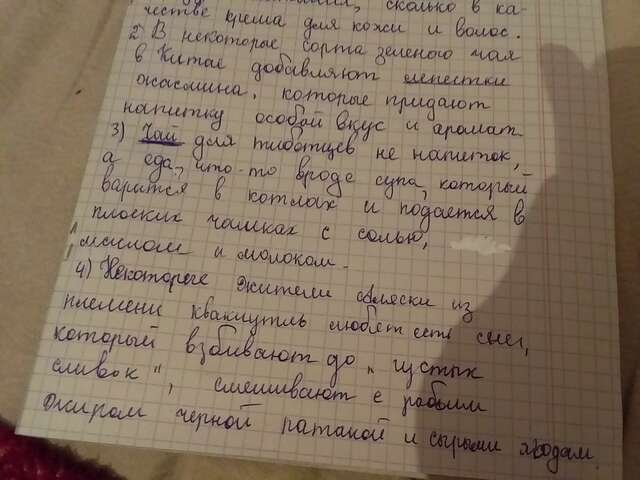 сколько в ка-
честве крема для кожи и волос.
2 В некоторые сорта зеленого чая
в Китае добавляют лепестки
жасмина, которые придают
напитку особой вкус и аромат.
3) Чай для тиботцев не напиток,
а еда, что-то вроде супа, который
варится в котлах и подается в
плоских чашках с солью,
маслом и молоком.
4) Некоторые жители Аляски из
племени квакиутль любят есть снег,
который взбивают до "густых
сливок", смешивают с рыбьим
жиром черной патакой и сырыми ягодам